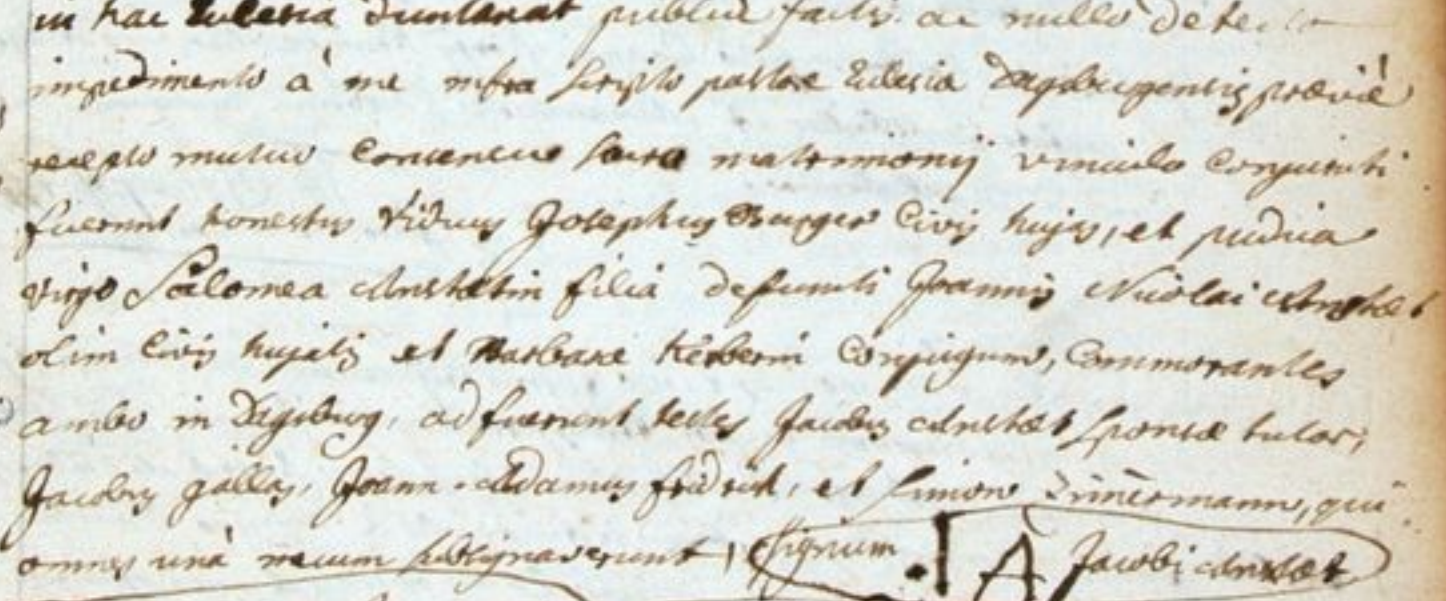 in hac Ecclesia duntaxat publice factis ac nullo detecto
impedimento à me infra scripto pastore Ecclesia Dagsburgensis prævié
recepto mutuo consensu sacro matrimonij vinculo conjuncti
fuerunt honestus viduus Josephus Burger Civis hujas, et pudica
virgo Salomea Anstetin filia defuncti Joannis Nicolai Anstæt
olim Civis hujatis et Barbaræ Kerberin Conjugum, Commorantes
ambo in Dagsburg, adfuerunt testes Jacobus Anstæt sponsæ tutor,
Jacobus gallas, Joann Adamus fridrich, et Simon Zimermann, qui
omnes unà mecum subsignaverunt, signum J A Jacobi Anstæt